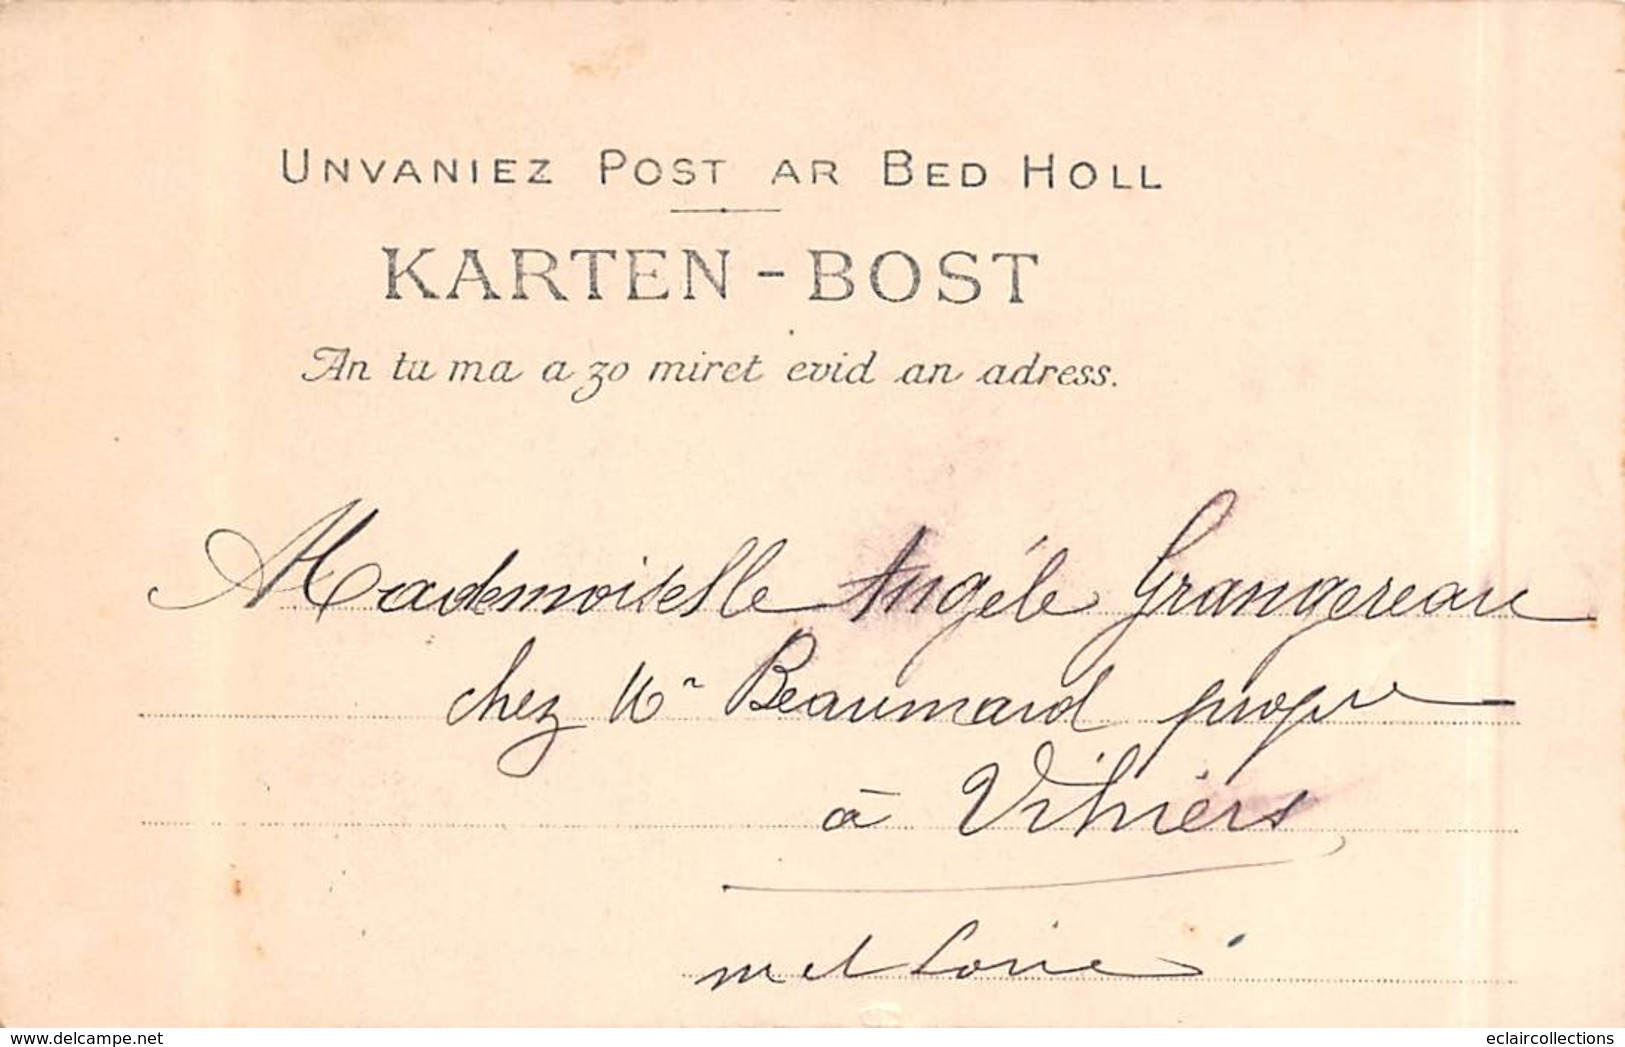 UNVANIEZ POST AR BED HOLL
KARTEN-BOST
An tu ma a zo miret evid an adress.
Mademoiselle Angéle Grangereau
chez Mr Beaumard propre
à Vihiers
m et Loire
delcampe.net
eclaircollections